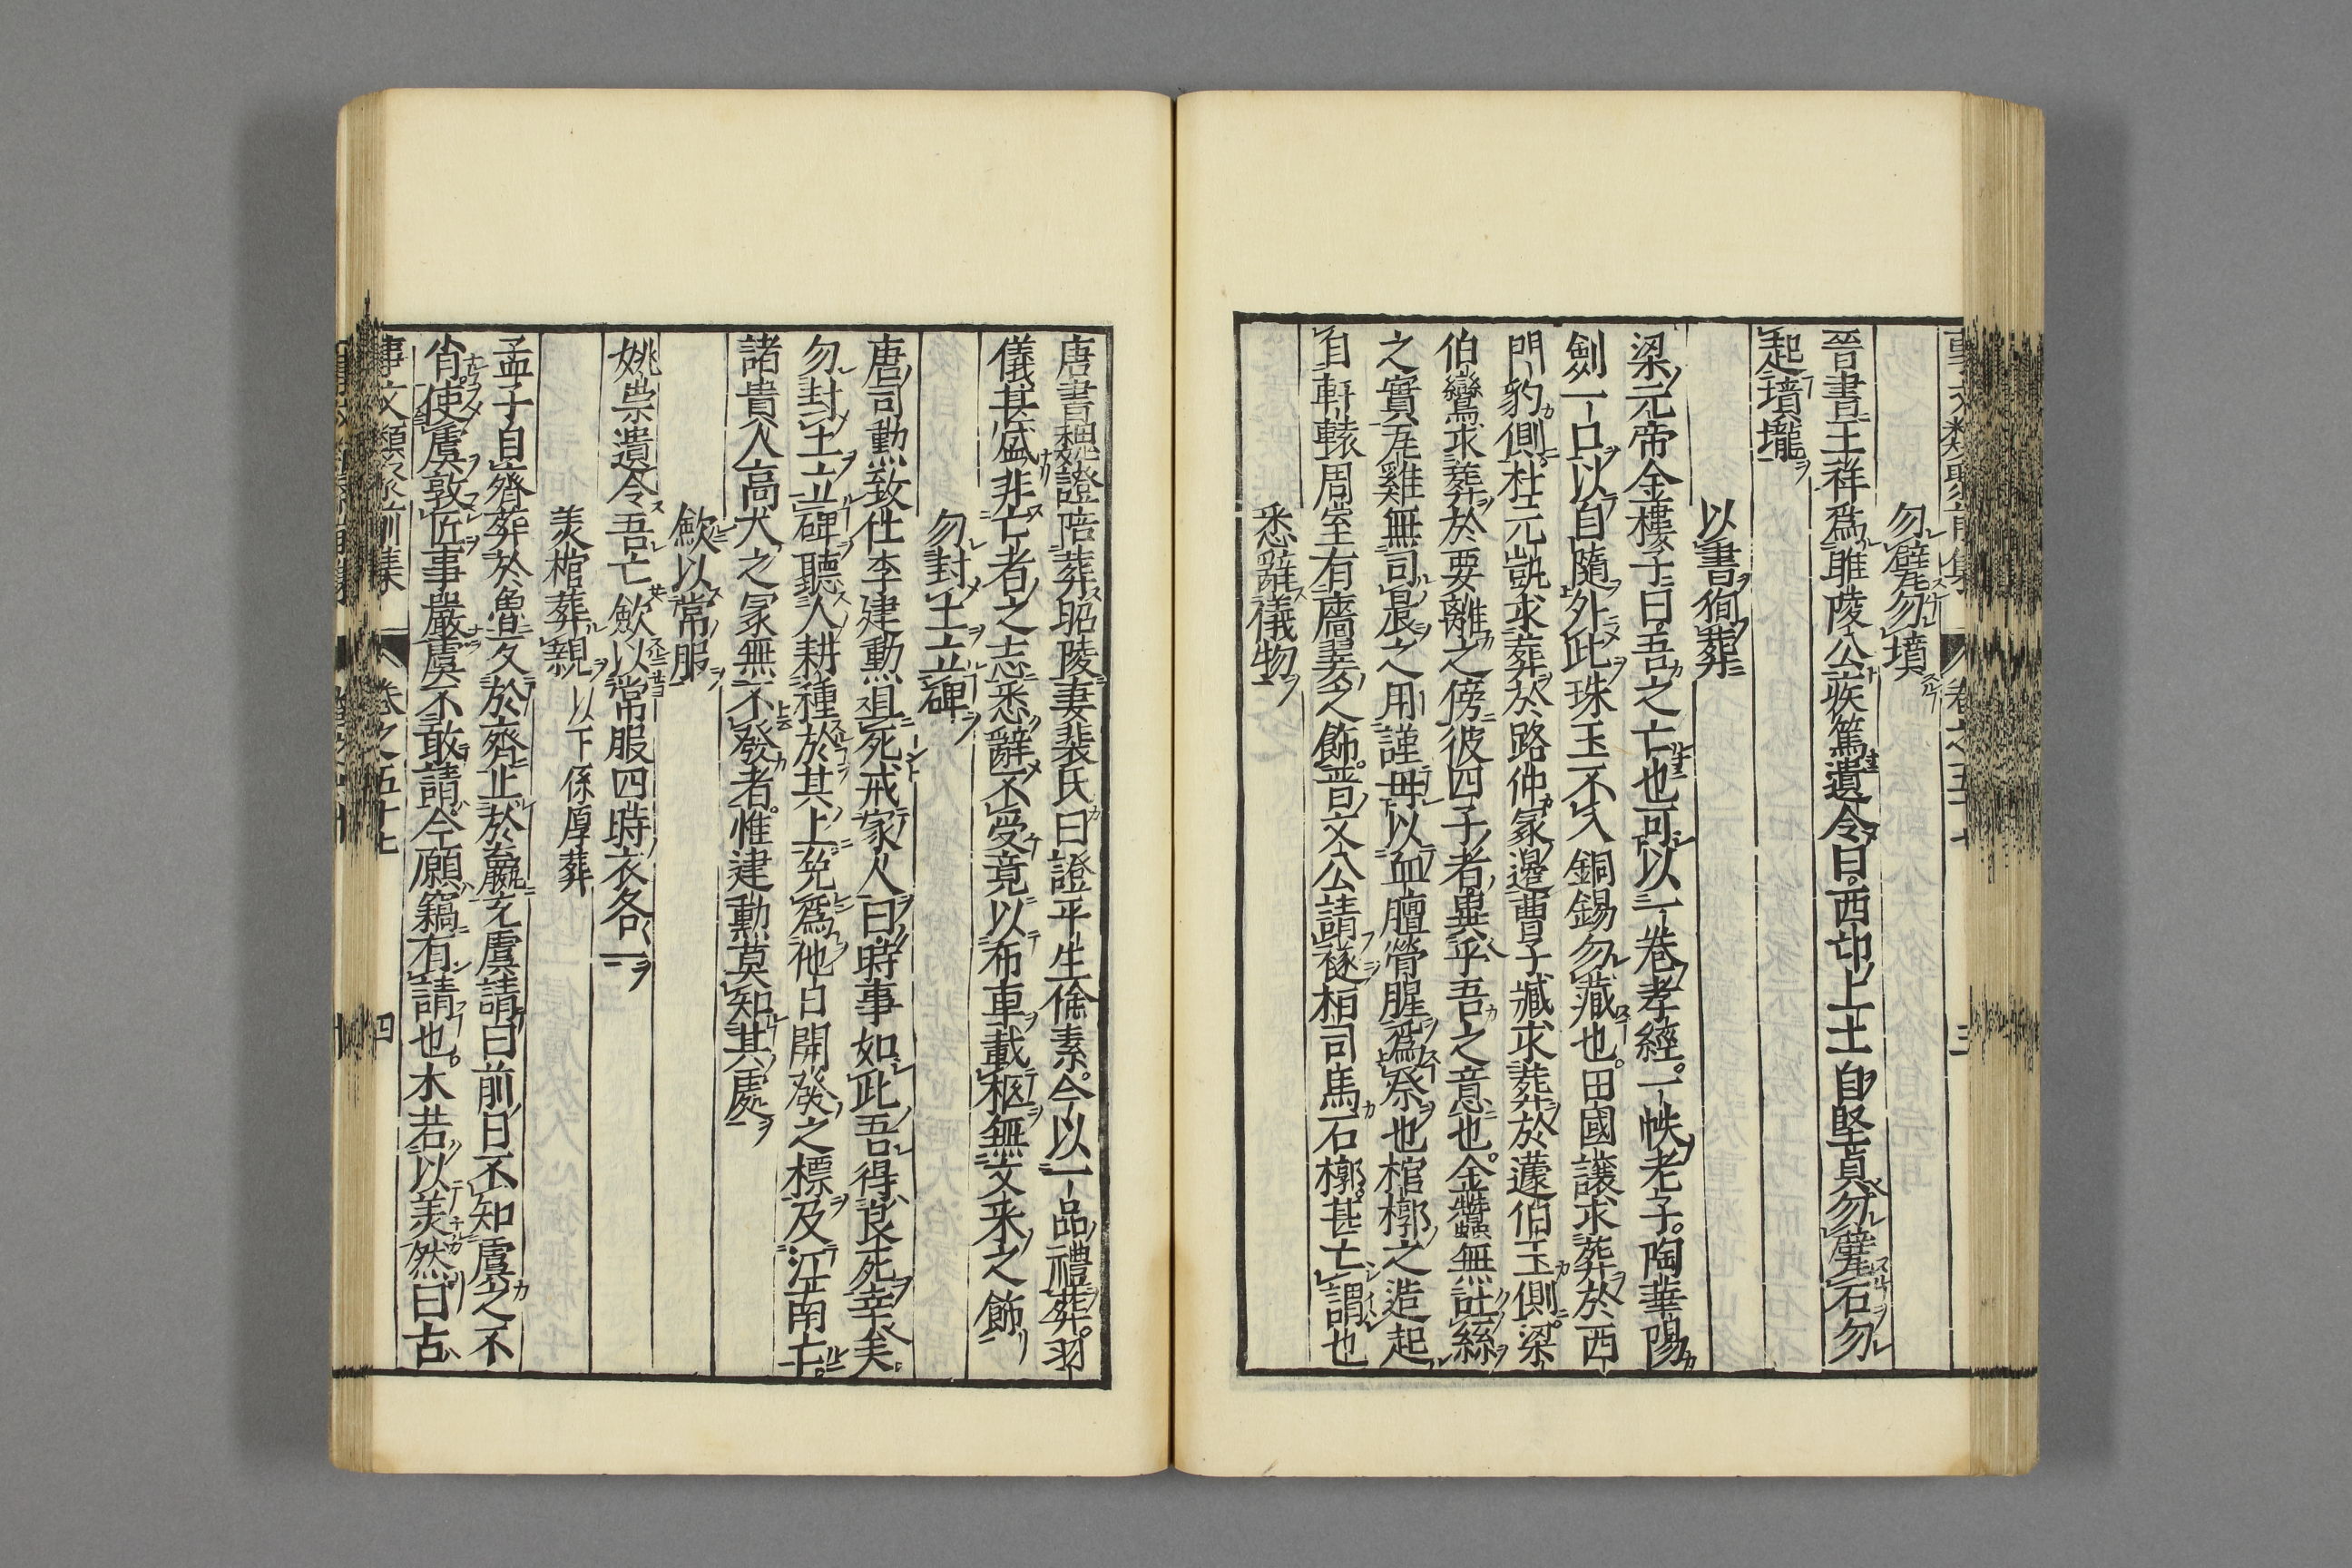 事文類聚前集 卷之五十七 三
勿甓勿墳
晉書王祥爲睢陵公疾篤遺令曰西芒上土自堅貞勿甓石勿
起墳壠
以書殉葬
梁元帝金樓子曰吾之亡也可以一卷孝經一帙老子陶華陽
劍一口以自隨外此珠玉不入銅錫勿藏也田國讓求葬於西
門豹側杜元凱求葬於路仲冢邊曹子臧求葬於蘧伯玉側梁
伯鸞求葬於要離之傍彼四子者異乎吾之意也金蠶無吐絲
之實瓦雞無司晨之用謹毋以血膻膋腥爲祭也棺槨之造起
自軒轅周室有廧翣之飾晉文公請襚桓司馬石槨甚亡謂也
悉辭儀物
唐書魏證陪葬昭陵妻裴氏曰證平生儉素今以一品禮葬羽
儀甚盛非亡者之志悉辭不受竟以布車載柩無文采之飾
勿封土立碑
唐司勳致仕李建勳且死戒家人曰時事如此吾得良死幸矣
勿封土立碑聽人耕種於其上免爲他日開發之標及江南亡
諸貴人高大之冢無不發者惟建勳莫知其處
歛以常服
姚崇遺令吾亡歛以常服四時衣各一
美棺葬親 以下係厚葬
孟子自齊葬於魯反於齊止於嬴充虞請曰前日不知虞之不
肖使虞敦匠事嚴虞不敢請今願竊有請也木若以美然曰古
事文類聚前集 卷之五十七 四